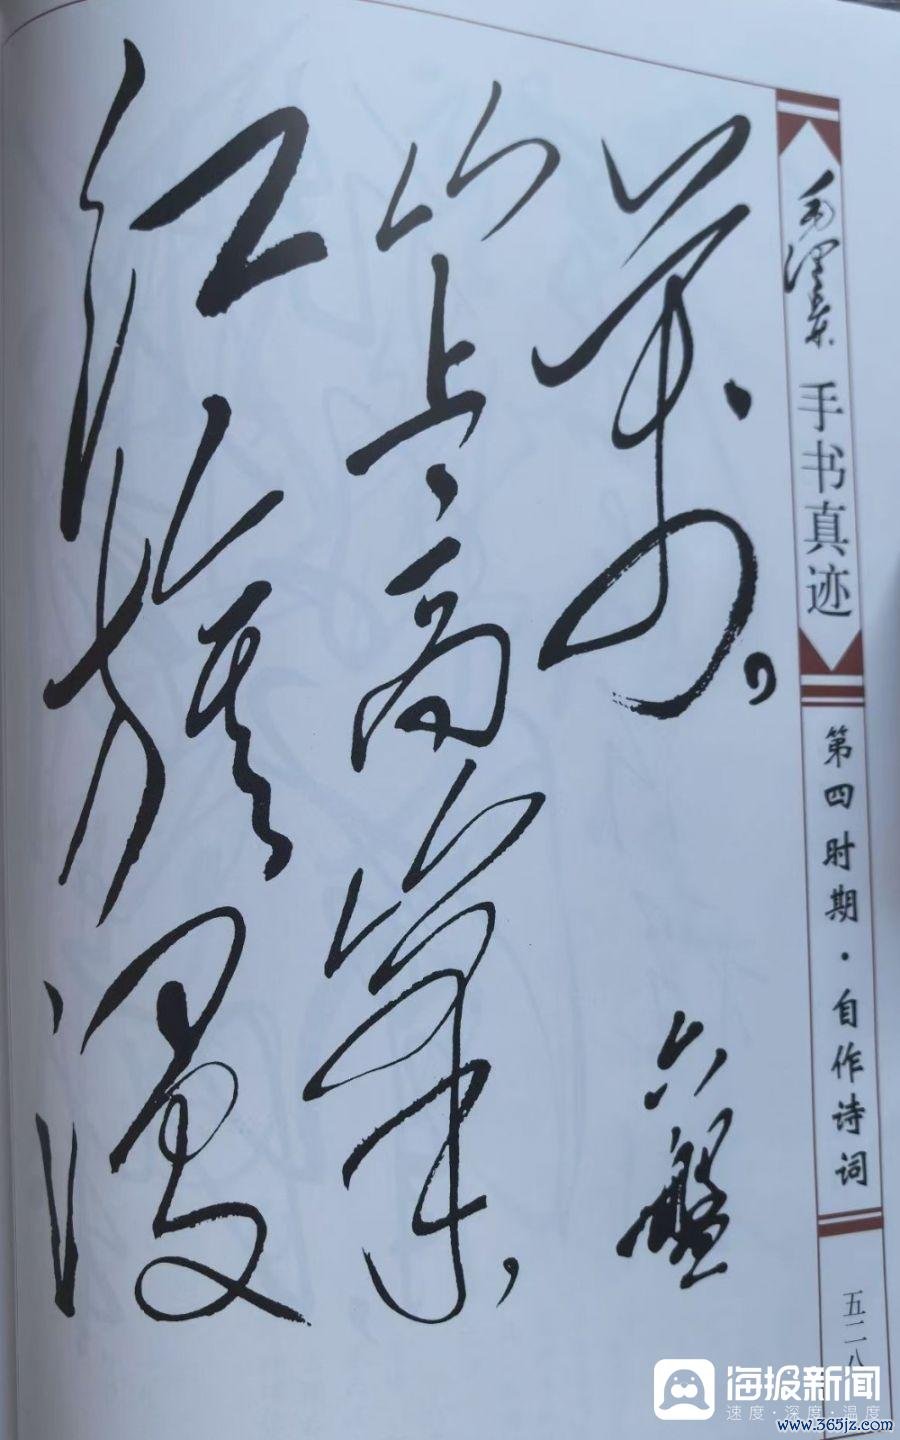 萬。六盤
山上高峯，
红旗漫
毛泽东 手书真迹
第四时期·自作诗词
五二八
海报新闻
速度·深度·温度
www.365jz.com